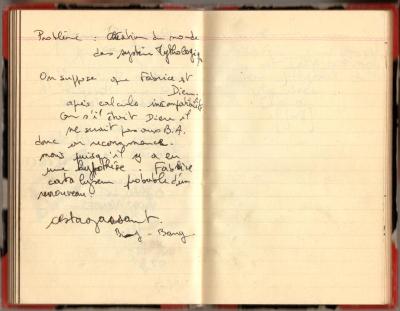 Problème : création du monde
dans système
On suppose que Fabrice est
Dieu.
après calculs incompatibilité
Car s'il était Dieu il
ne serait pas aux B.A.
donc on recommence.
mais puisqu'il y a eu
une hypothèse Fabrice
catalyseur probable d'un
renouveau.
Big-Bang